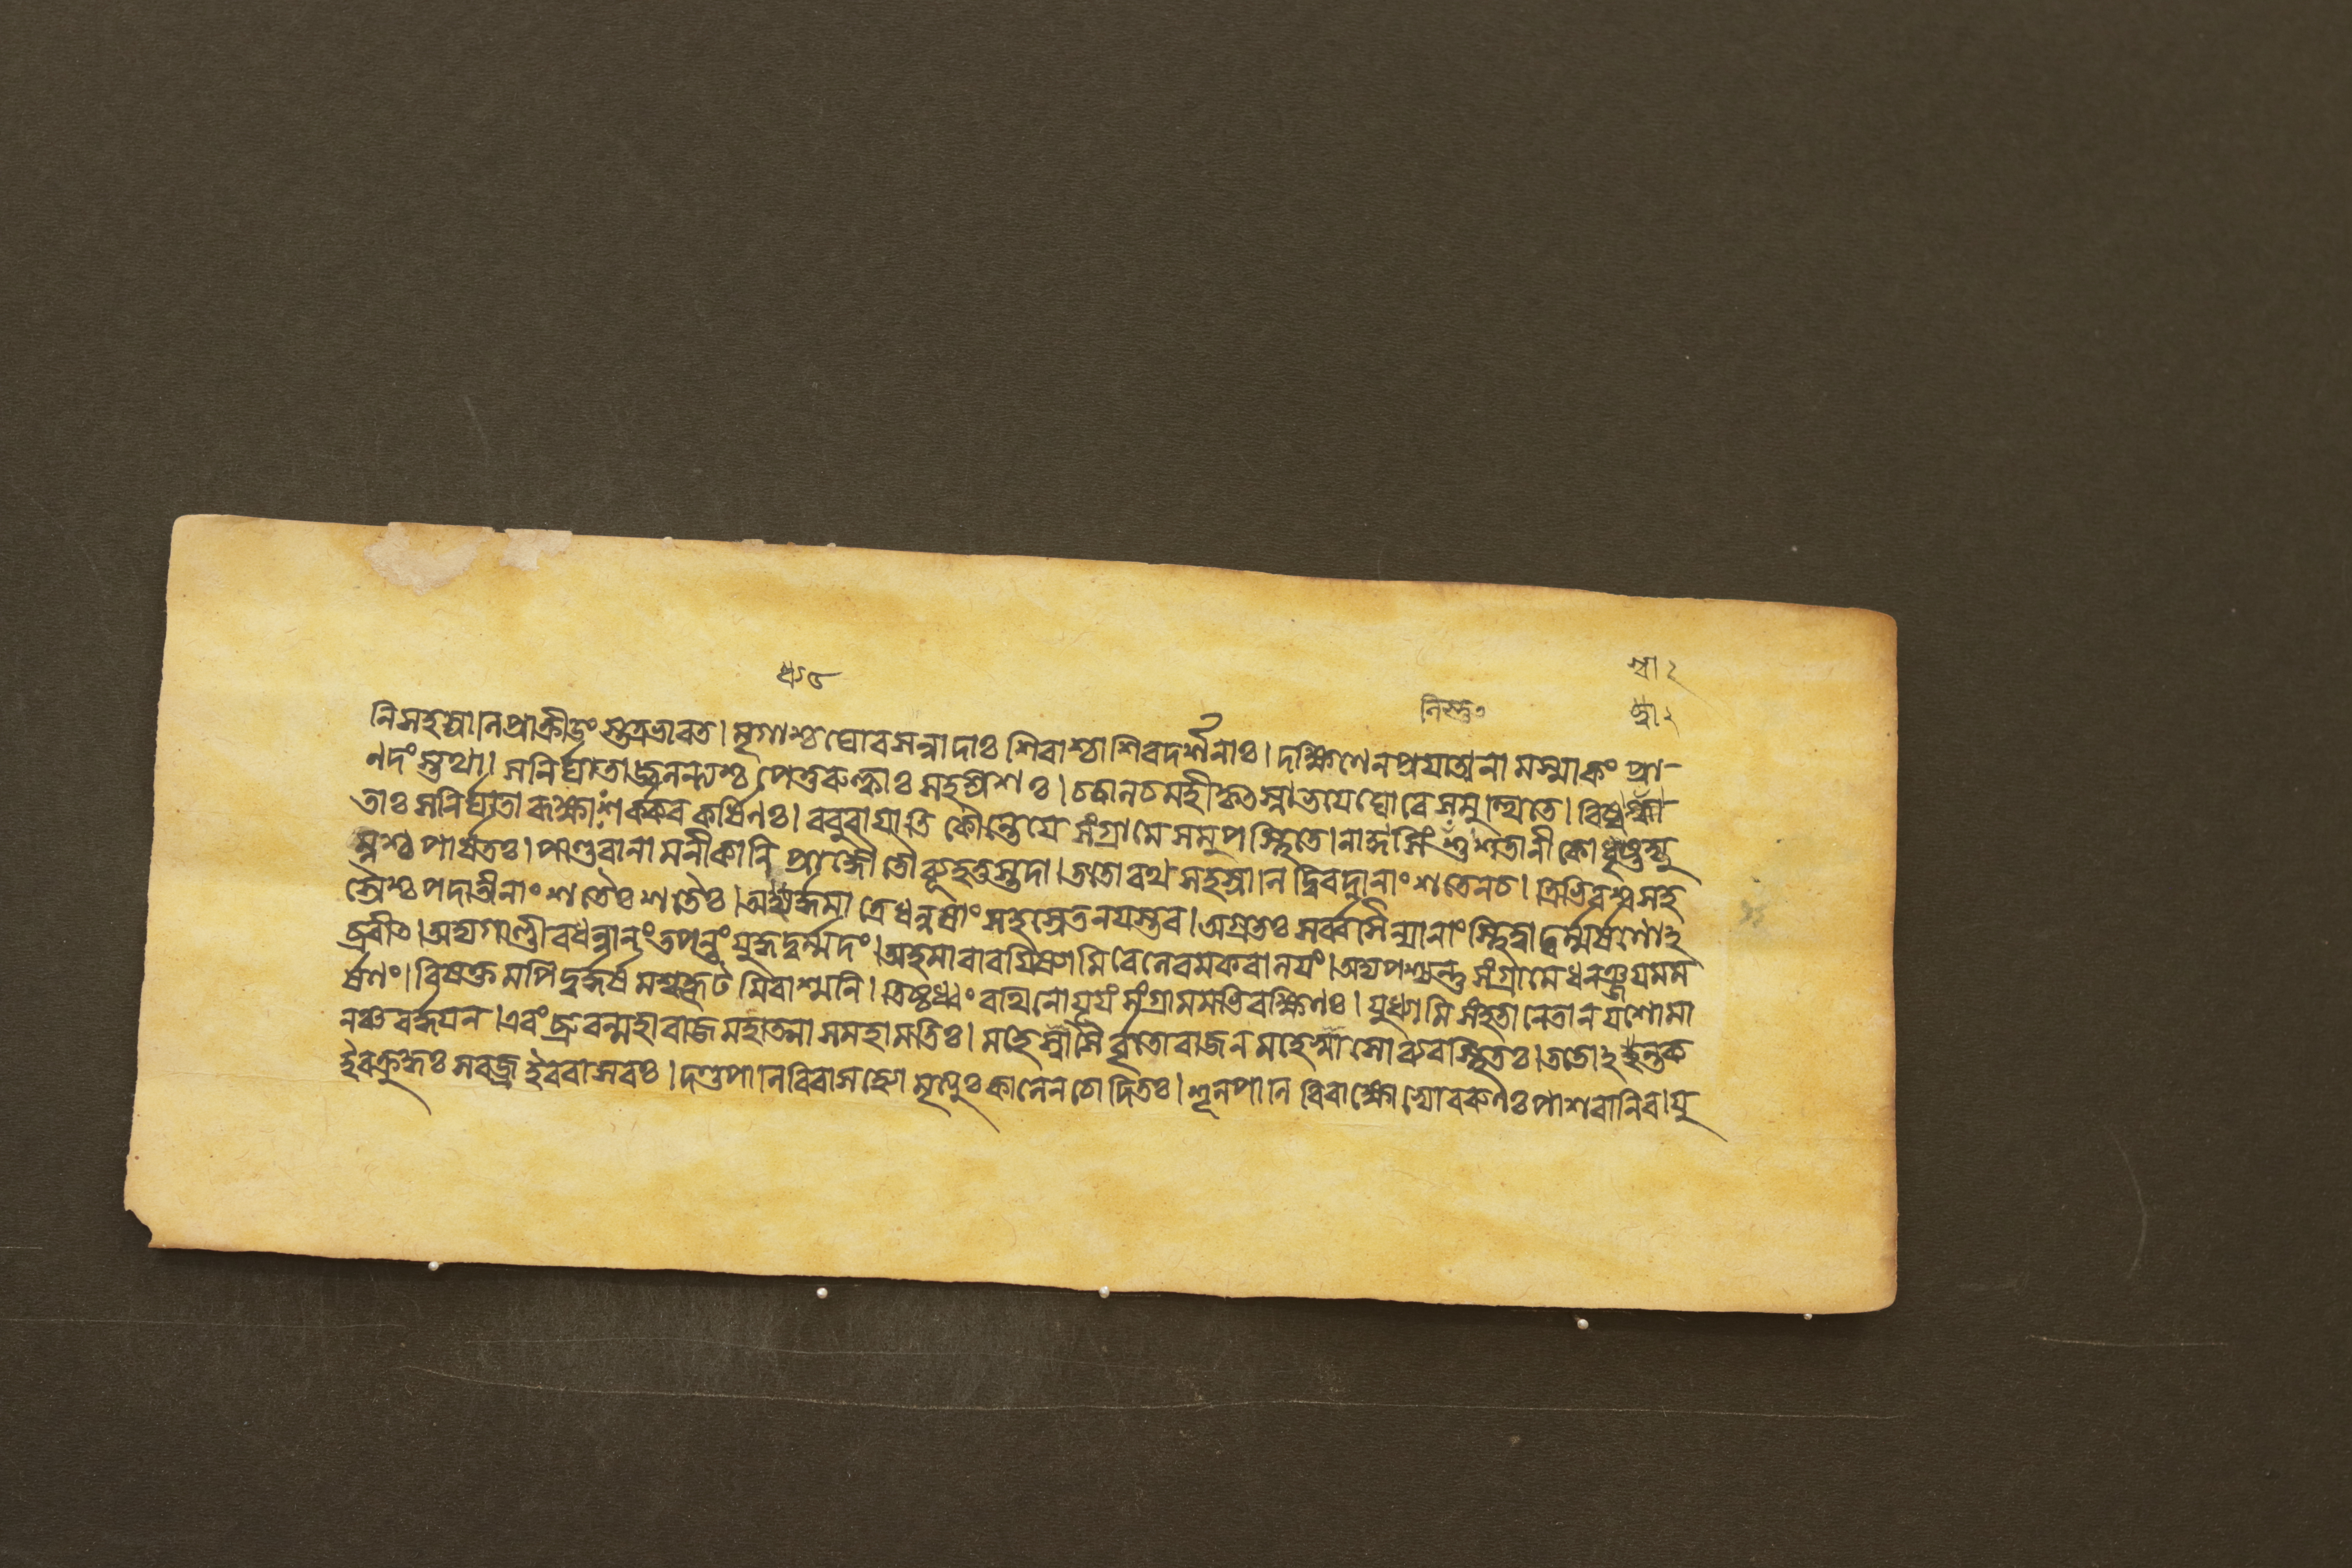 নিসহস্রানিপ্রাক্রীডংস্তত্রভারত। মৃগাশ্চঘোরসন্নাদাঃ শিবাশ্চাশিবদর্শনাঃ। দক্ষিণেনপ্রয়াতানামস্মাকং প্রা-
ণদংস্তথা। সনির্ঘাতাজ্বলন্ত্যশ্চ পেতুরুল্কাঃ সহস্রশঃ। চচালচমহীকৃৎস্নাভয়েঘোরে সমুত্থিতে।
তাঃ সনির্ঘাতারূক্ষাঃ শর্করকর্ষিণঃ। ববুরায়াতি কৌন্তেয়ে সংগ্রামে সমুপস্থিতে। শতানীকোধৃষ্টদ্যু
ম্নশ্চ পার্ষতঃ। পাণ্ডবানামনীকানি প্রাজ্ঞৌতৌব্যূহতুস্তদা। ততোরথসহস্রেন দ্বিরদানাং শতেনচ। ত্রিভিরশ্বসহ
স্রৈশ্চপদাতীনাং শতৈঃ শতৈঃ। অধ্যর্দ্ধমাত্রেধনুষাং সহস্রেতনয়স্তব। অগ্রতঃ সর্ব্বসৈন্যানাং স্থিত্বাদুর্ম্মর্ষণো২
ব্রবীৎ। অদ্যগাণ্ডীবধন্বানং তপন্তং যুদ্ধদুর্ম্মদং। অহমাবারয়িষ্যামি বেলেবমকরালয়ং। অদ্যপশ্যন্তু সংগ্রামেধনঞ্জয়মম
র্ষণং। বিষক্তমপি দুর্দ্ধর্ষমশ্মকূটমিবাশ্মনি। তিষ্ঠধ্বং রথিনোযূয়ং সংগ্রামমভিকাঙ্ক্ষিণঃ। যুধ্যামি সংহতানেতানযশোমা
নঞ্চবর্দ্ধয়ন। এবং ব্রুবন্মহারাজমহাত্মাসমহামতিঃ। মহেষ্বাসৈর্বৃতোরাজনমহেষ্বাসোব্যবস্থিতঃ। ততো২ন্তক
ইবক্রুদ্ধঃ সবজ্রইববাসবঃ। দণ্ডপানিরিবাসহ্যোমৃত্যুঃ কালেনচোদিতঃ। শূলপানিরিবাক্ষোভ্যোবরুণঃ পাশবানিব। যু